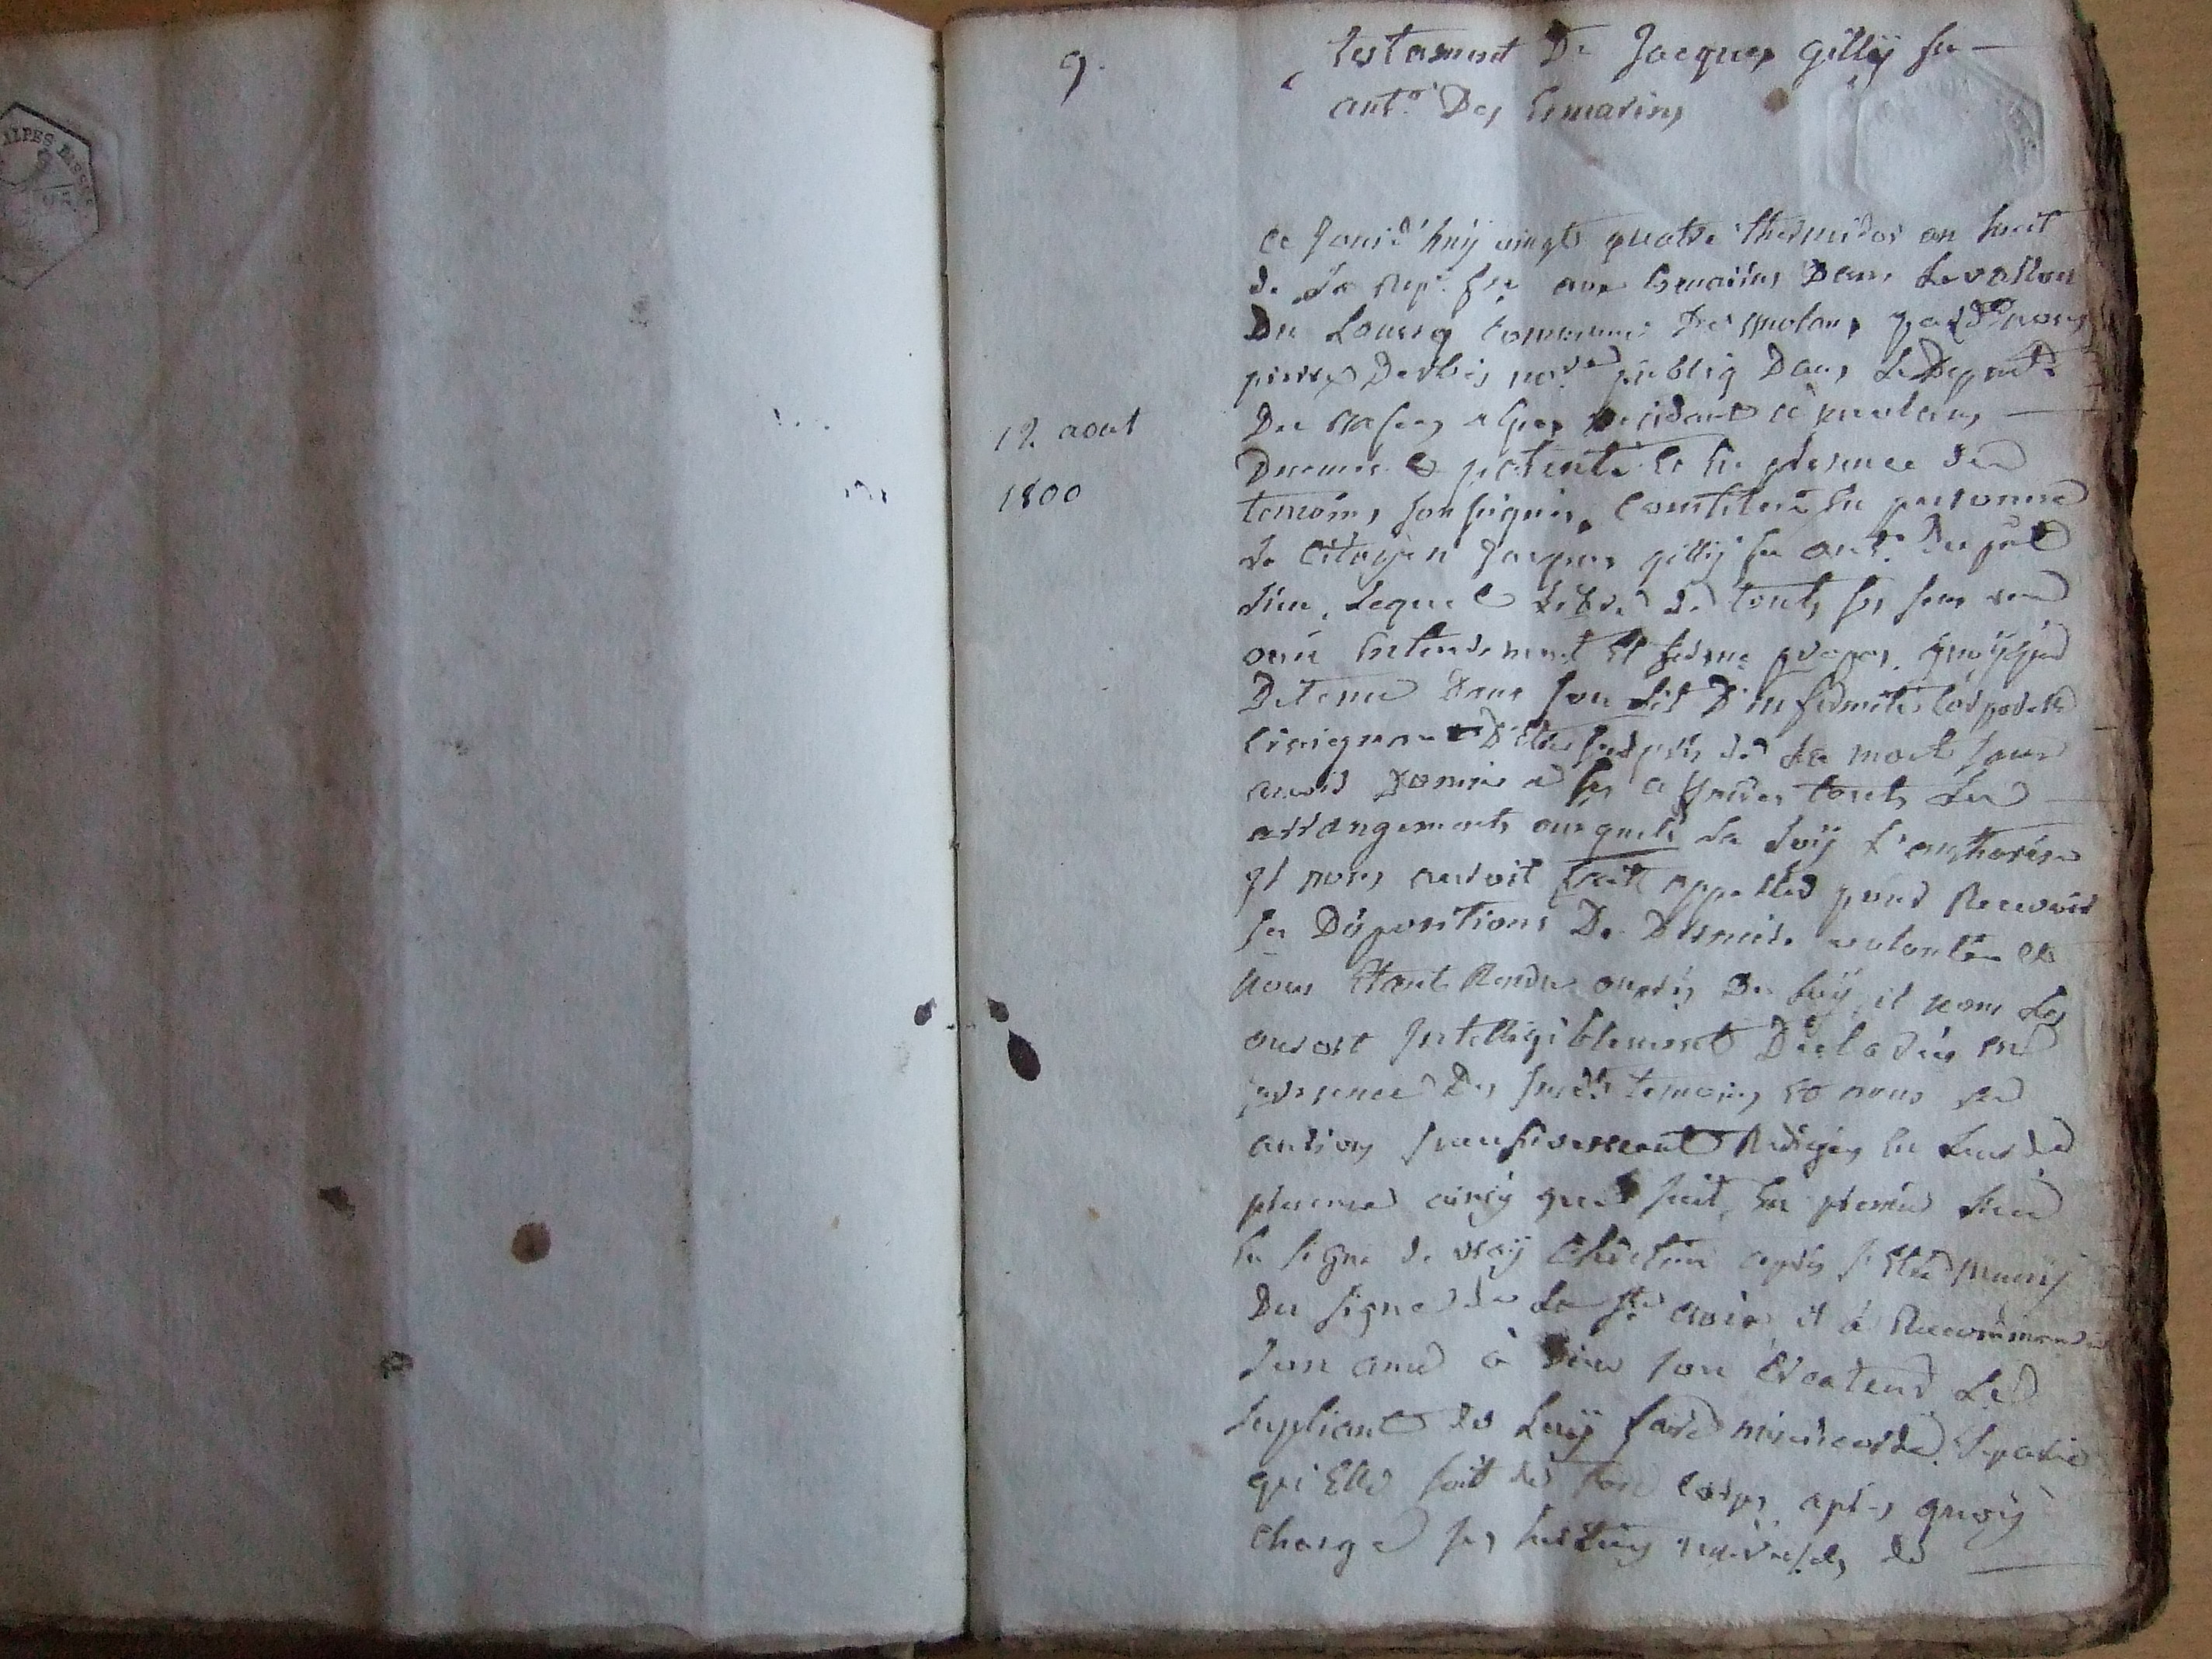 ALPES BASSES
9.
testament De Jacques gillÿ feu
ant.e Des Emarins
12. aout
1800
ce Jourd'huÿ vingt quatre thermidor an huit
de La rep. fse aux Emarins Dans Le vallon
Du Lourq commune par nous
pierre Derbes no.re publiq Dans Le Depmt.
Des basses alpes residant a
Dument patenté Et En presence des
temoins sousignés, Constitué En personne
le Citoyen Jacques gillÿ feu ant.e Du dit
Lieu, Lequel Libre de touts ses sens
ouie Entendement Et ferme propos, quoyque
Detenu Dans son Lit D'infirmités Corporelle
Craignant D'Etre surpris de La mort sans
avoir Donné a ses affaires touts Les
arrangements auxquels La Loÿ L'authorise
Et nous auroit fait appeller pour Recevoir
ses Dispositions De Derniere volonté Et
nous Etant Rendu auprés De luÿ, il nous Les
auroit Intelligiblement Declarées En
presence Des susdts temoins Et nous Les
aurions successivement Redigées En Leur
presence ainsÿ que suit, En premier Lieu
En signe de vraÿ Chretien aprés s'Etre munÿ
Du signe de La ste croix, il a Recommandé
son ame a Dieu son Createur Le
supliant de Luÿ faire misericorde, separée
qu'Elle soit de son Corps, aprés quoÿ
charge ses heritiers de